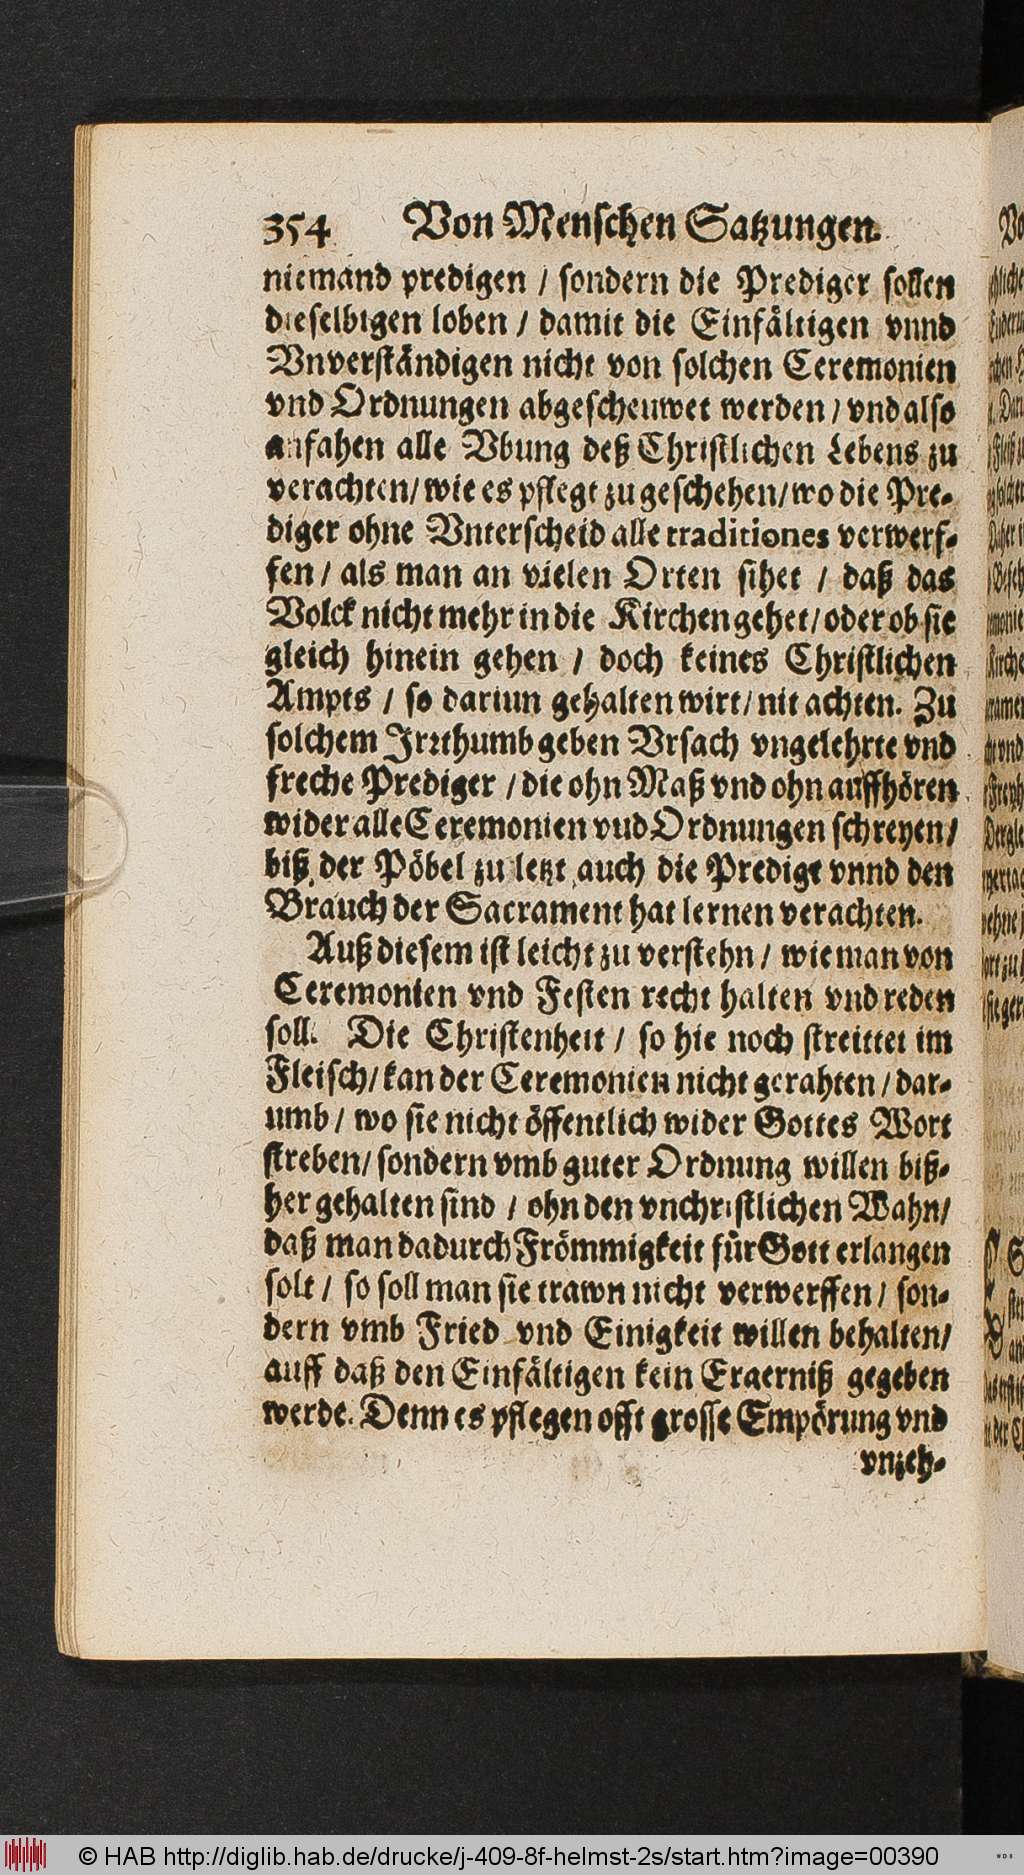 354 Von Menschen Satzungen.
niemand predigen / sondern die Prediger sollen
dieselbigen loben / damit die Einfältigen vnnd
Vnverständigen nicht von solchen Ceremonien
vnd Ordnungen abgescheuwet werden / vnd also
anfahen alle Vbung deß Christlichen Lebens zu
verachten / wie es pflegt zu geschehen / wo die Pre-
diger ohne Vnterscheid alle traditiones verwerf-
fen / als man an vielen Orten sihet / daß das
Volck nicht mehr in die Kirchen gehet / oder ob sie
gleich hinein gehen / doch keines Christlichen
Ampts / so dariun gehalten wirt / nit achten. Zu
solchem Irrthumb geben Vrsach vngelehrte vnd
freche Prediger / die ohn Maß vnd ohn auffhören
wider alle Ceremonien vud Ordnungen schreyen /
biß der Pöbel zu letzt auch die Predigt vnnd den
Brauch der Sacrament hat lernen verachten.
Auß diesem ist leicht zu verstehn / wie man von
Ceremonien vnd Festen recht halten vnd reden
soll. Die Christenheit / so hie noch streittet im
Fleisch / kan der Ceremonien nicht gerahten / dar-
umb / wo sie nicht öffentlich wider Gottes Wort
streben / sondern vmb guter Ordnung willen biß-
her gehalten sind / ohn den vnchristlichen Wahn /
daß man dadurch Frömmigkeit für Gott erlangen
solt / so soll man sie trawn nicht verwerffen / son-
dern vmb Fried vnd Einigkeit willen behalten /
auff daß den Einfältigen kein Ergerniß gegeben
werde. Denn es pflegen offt grosse Empörung vnd
vnzeh-
© HAB http://diglib.hab.de/drucke/j-409-8f-helmst-2s/start.htm?image=00390